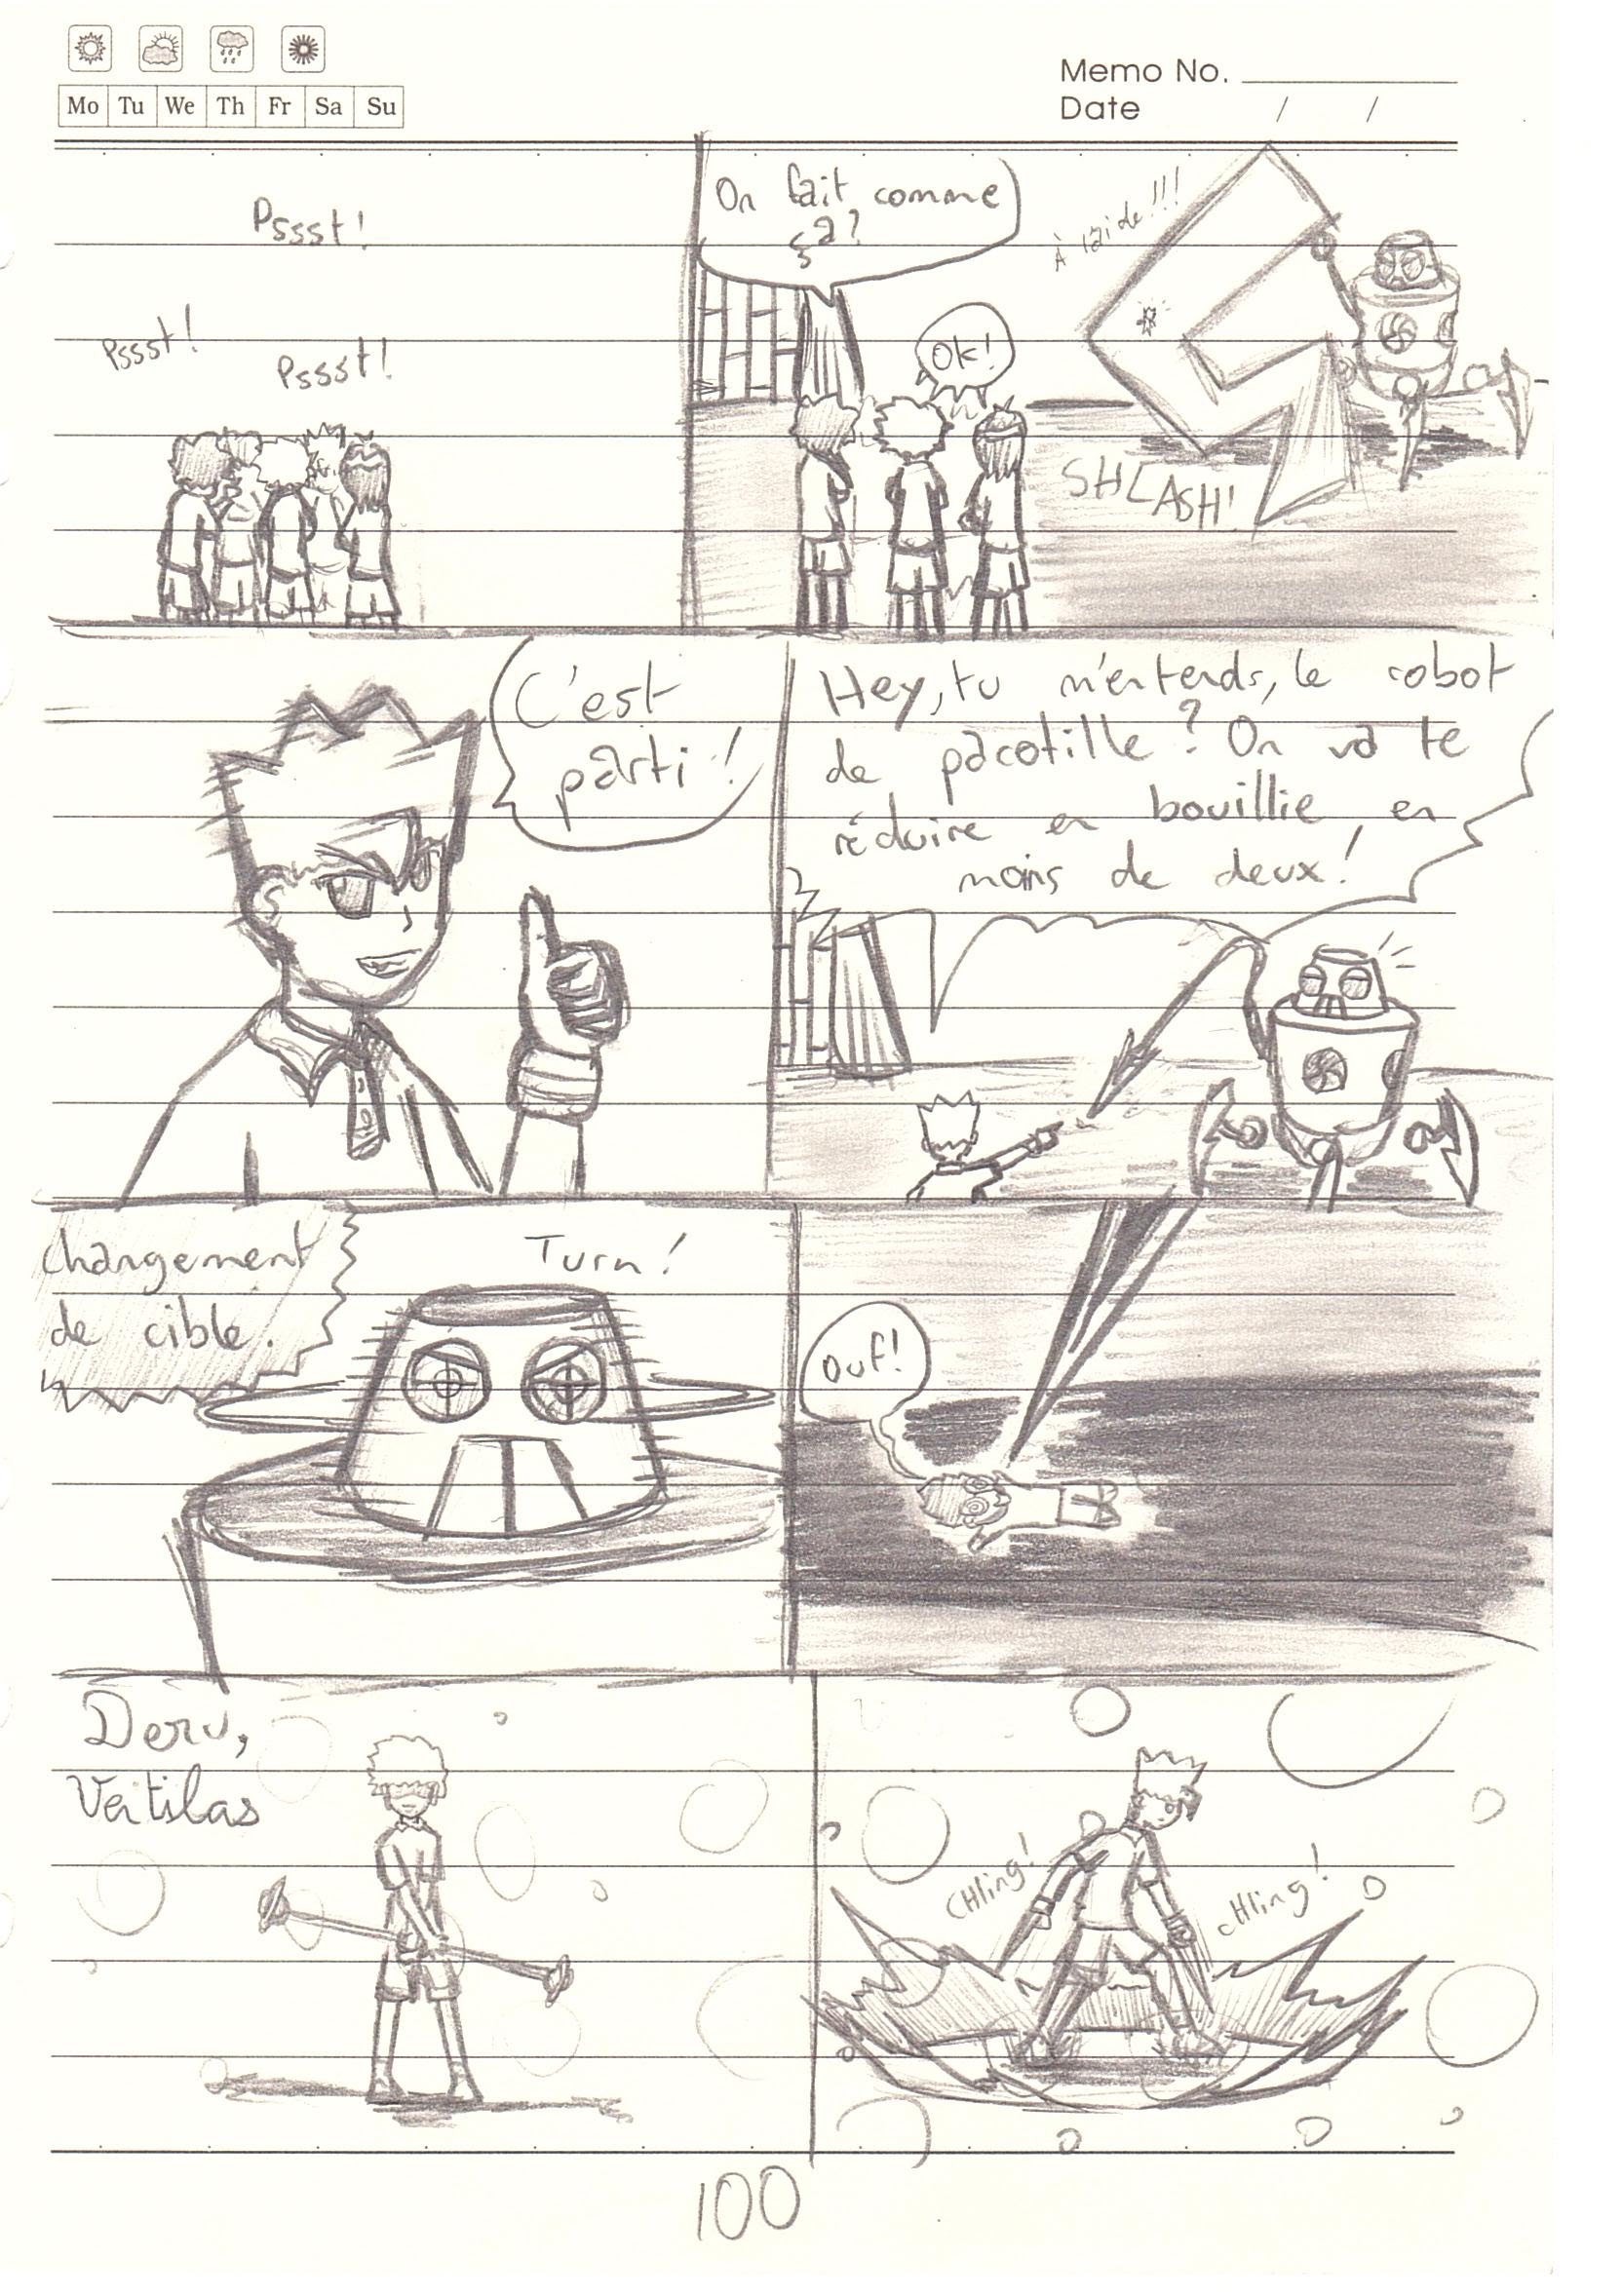 Mo Tu We Th Fr Sa Su
Memo No.
Date / /
Pssst!
Pssst!
Pssst!
On fait comme
ça?
Ok!
À l'aide!!!
SHLASH!
C'est
parti!
Hey, tu m'entends, le robot
de pacotille? On va te
réduire en bouillie, en
moins de deux!
Changement
de cible.
Turn!
Ouf!
Deru,
Ventilas
CHling!
CHling!
100